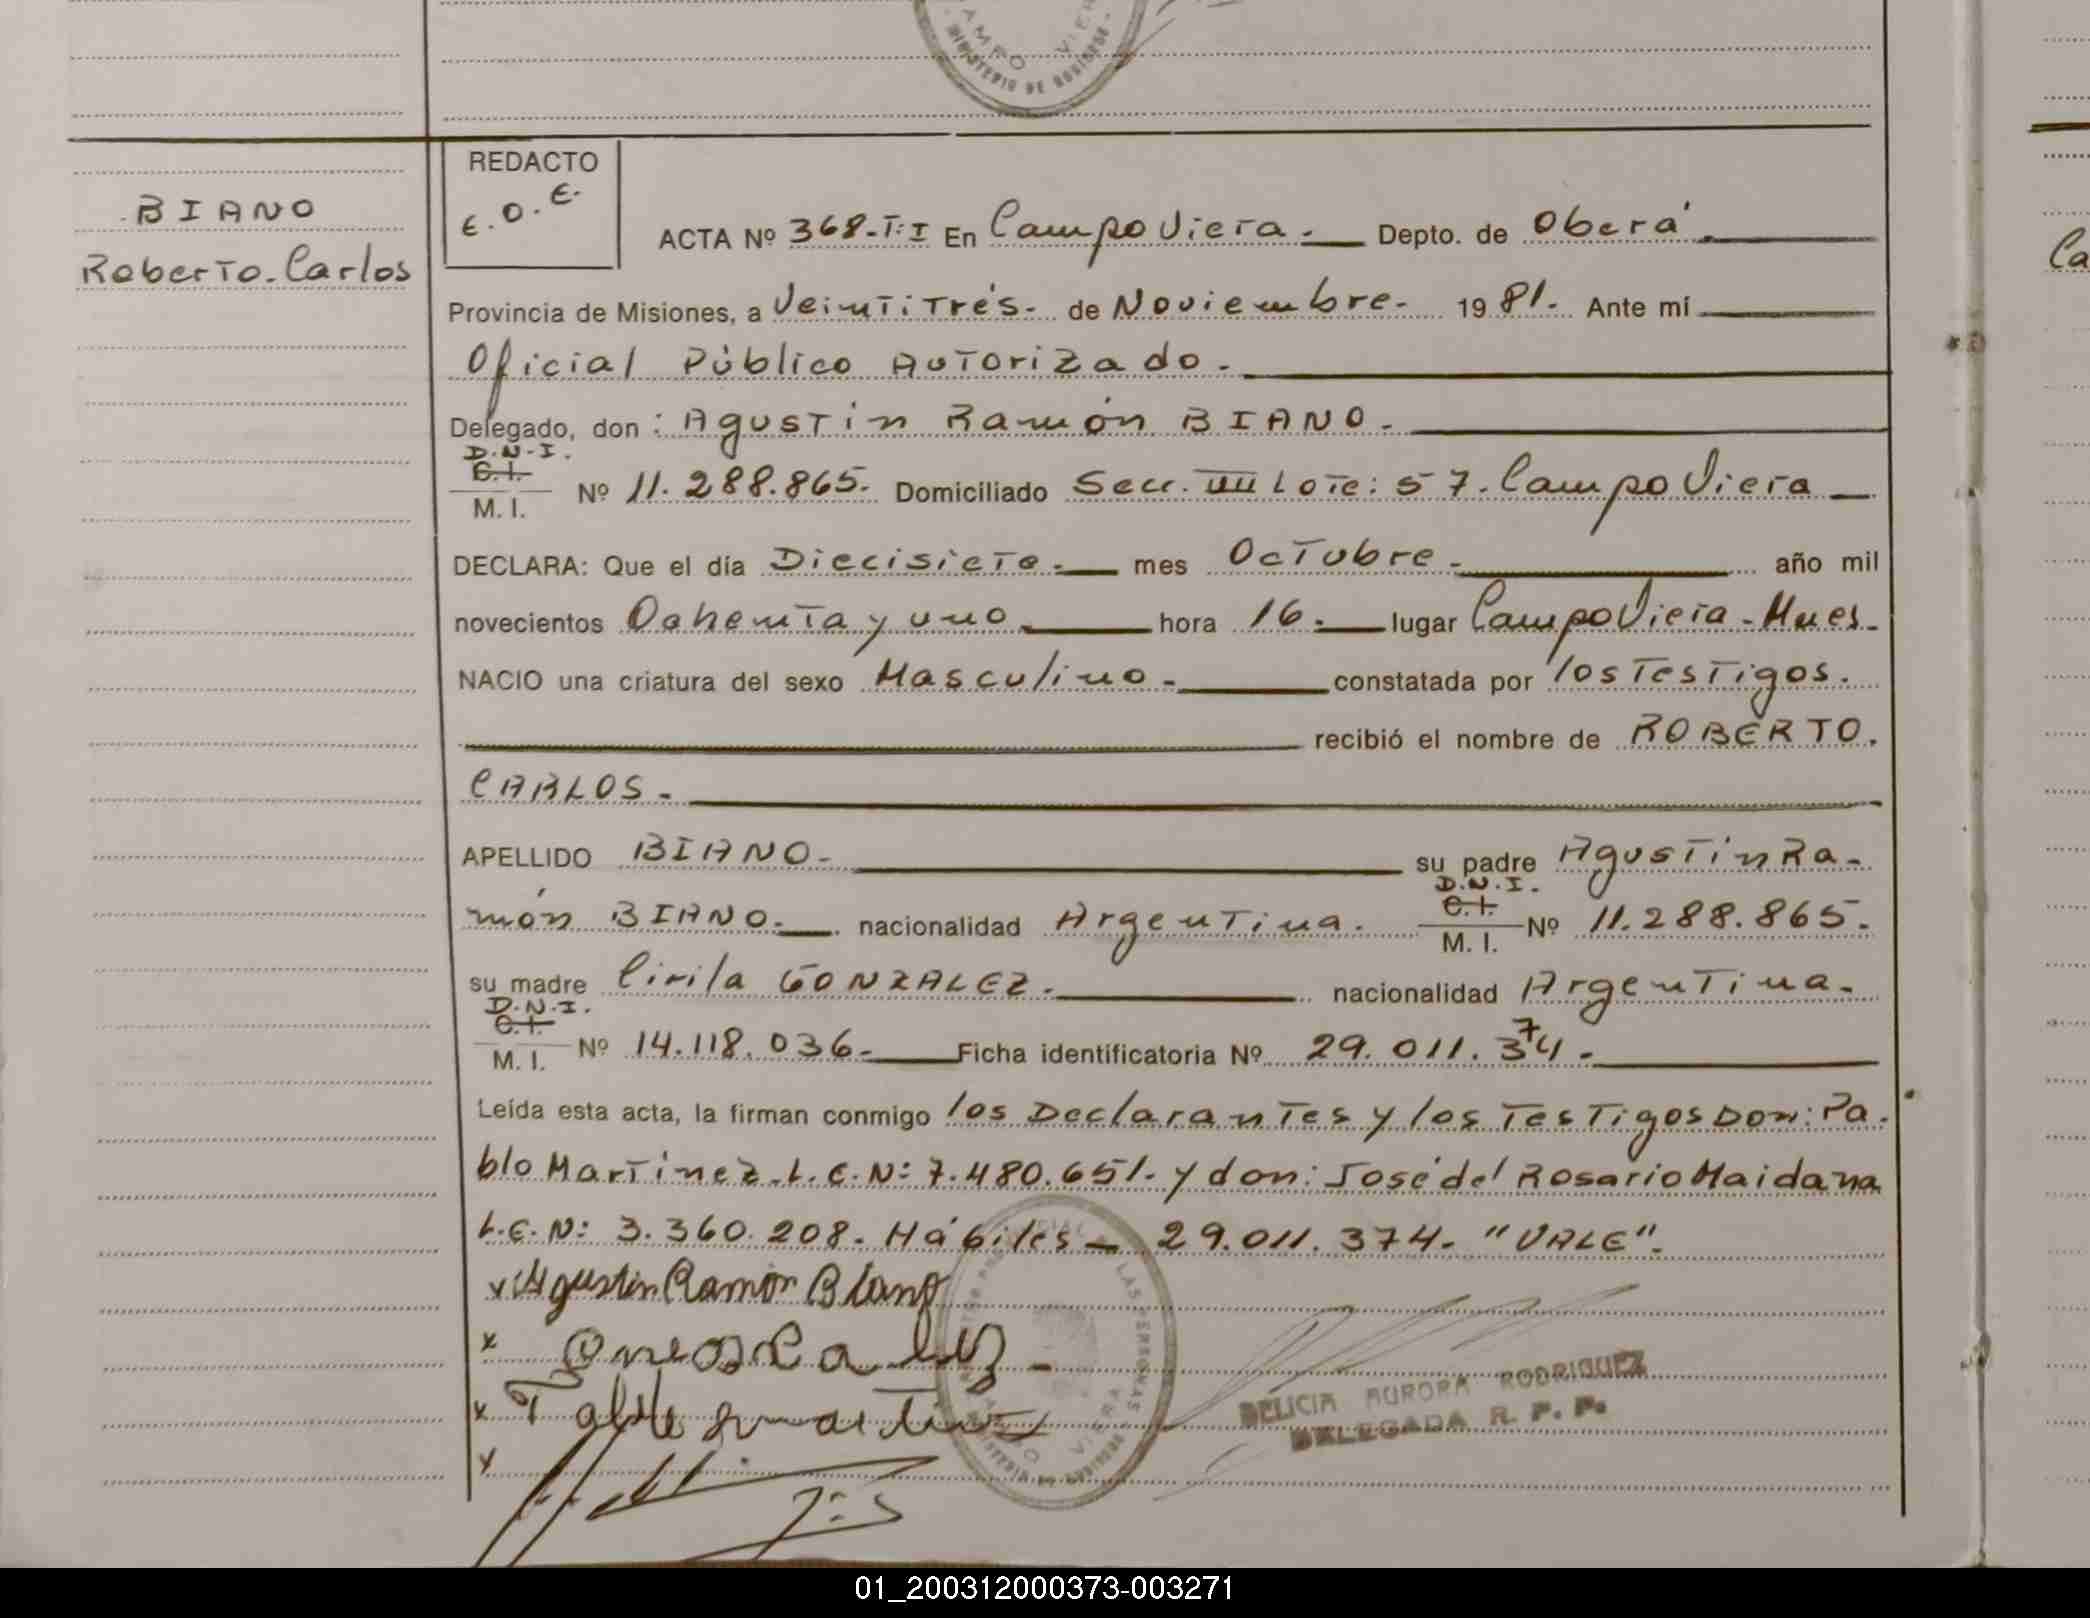 CAMPO VIER
MINISTERIO DE GOBIERNO
BIANO
Roberto.Carlos
REDACTO
E.O.E.
ACTA Nº 368-T:I En Campo Viera. Depto. de Oberá.
Provincia de Misiones, a Veintitrés. de Noviembre. 1981. Ante mí
Oficial Público Autorizado.
Delegado, don: Agustín Ramón BIANO.
D.N.I.
C.I.
M. I. Nº 11.288.865. Domiciliado Secc. VIII Lote: 57. Campo Viera
DECLARA: Que el día Diecisiete. mes Octubre. año mil
novecientos Ochenta y uno. hora 16. lugar Campo Viera-Mnes.
NACIO una criatura del sexo Masculino. constatada por los Testigos.
recibió el nombre de ROBERTO.
CARLOS.
APELLIDO BIANO. su padre Agustín Ra-
món BIANO. nacionalidad Argentina. D.N.I. C.I. M. I. Nº 11.288.865.
su madre Cirila GONZALEZ. nacionalidad Argentina.
D.N.I.
C.I.
M. I. Nº 14.118.036. Ficha identificatoria Nº 29.011.374.
Leída esta acta, la firman conmigo los Declarantes y los Testigos Don: Pa.
blo Martinez.L.E.N: 7.480.651. y don: José del Rosario Maidana
L.E.N: 3.360.208. Hábiles- 29.011.374. "VALE".
x Agustin Ramón Biano
x
x
x
LAS PERSONAS
CAMPO VIERA
MINISTERIO DE GOBIERNO
DELICIA AURORA RODRIGUEZ
DELEGADA R. P. P.
Ca
01_200312000373-003271